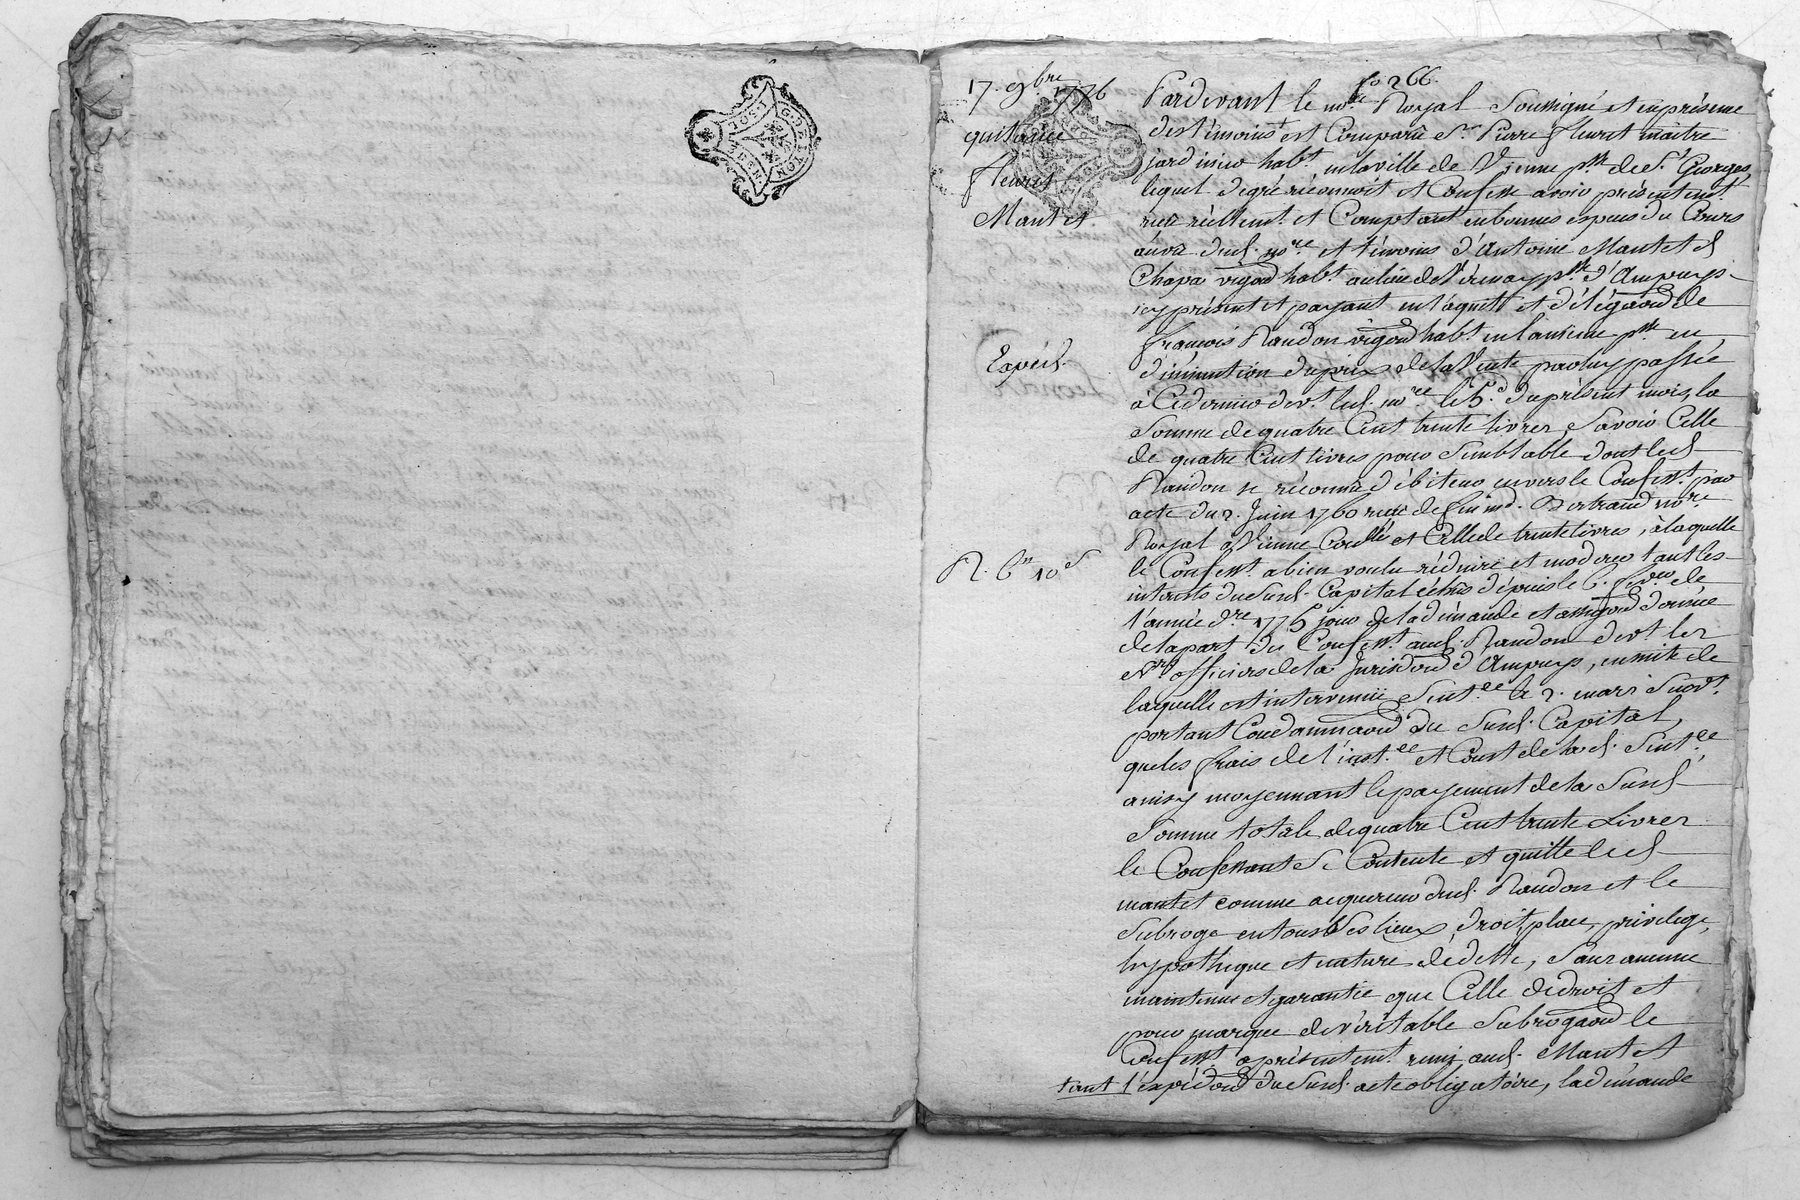 17. 9.bre 1776
quitance
fleuret
Mantet
Expéd.
R. 6ʰ 10ˢ
fo 266.
Pardevant le no.re Royal Soussigné et en présence
des témoins est Comparu Sr Pierre fleuret maitre
jardinier hab.t en la ville de Vienne p.sse de St Georges,
lequel de gré reconnoit et Confesse avoir présentem.t
reçu réellem.t et Comptant en bonnes espèces du Cours
au vû dud. no.re et témoins d'Antoine Mantet d
Chapa vigon hab.t au lieu de Verenay p.sse d'Ampuys
icy présent et payant en l'aquit et délégaôn de
françois Randon vigon hab.t en la même p.sse en
diminution du prix de la Vente par luy passée
a Ce dernier dev.t led. no.re le 5.e du présent mois, la
Somme de quatre Cent trente livres, Savoir Celle
de quatre Cent livres pour Semblable dont led
Randon se reconnu débiteur envers le Confess.t par
acte du 2. Juin 1760 reçu de feu m.e Bertrand no.re
Royal a Vienne Conllé et Celle de trente livres, à laquelle
le Confess.t a bien voulu réduire et moderer tant les
interets dud Susd. Capital échus depuis le 6. fev.er de
l'année d.re 1775 jour de la démande et assignaôn donnée
de la part du Confess.t aud. Randon dev.t les
Srs officiers de la Jurisdôn d'Ampuys, en suite de
laquelle est intervenue Sent.ce le 2. mars Suiv.t
portant Condamnaôn du Susd. Capital,
que les frais de l'inst.ce et Coust de lad. Sent.ce
moyennant le payement de la Susd
Somme totale de quatre Cent trente Livres
le Confessant Se Contente et quitte led
mantet comme acquereur dud. Randon et le
Subroge en tous Ses lieux, droit, place, privilege,
hypotheque et nature de dette, Sans aucune
maintenue et garantie que Celle de droit et
pour marque de véritable Subrogaôn le
Confess.t a présentem.t remis aud. Mantet
tant l'expédôn du Susd. acte obligatoire, la démande